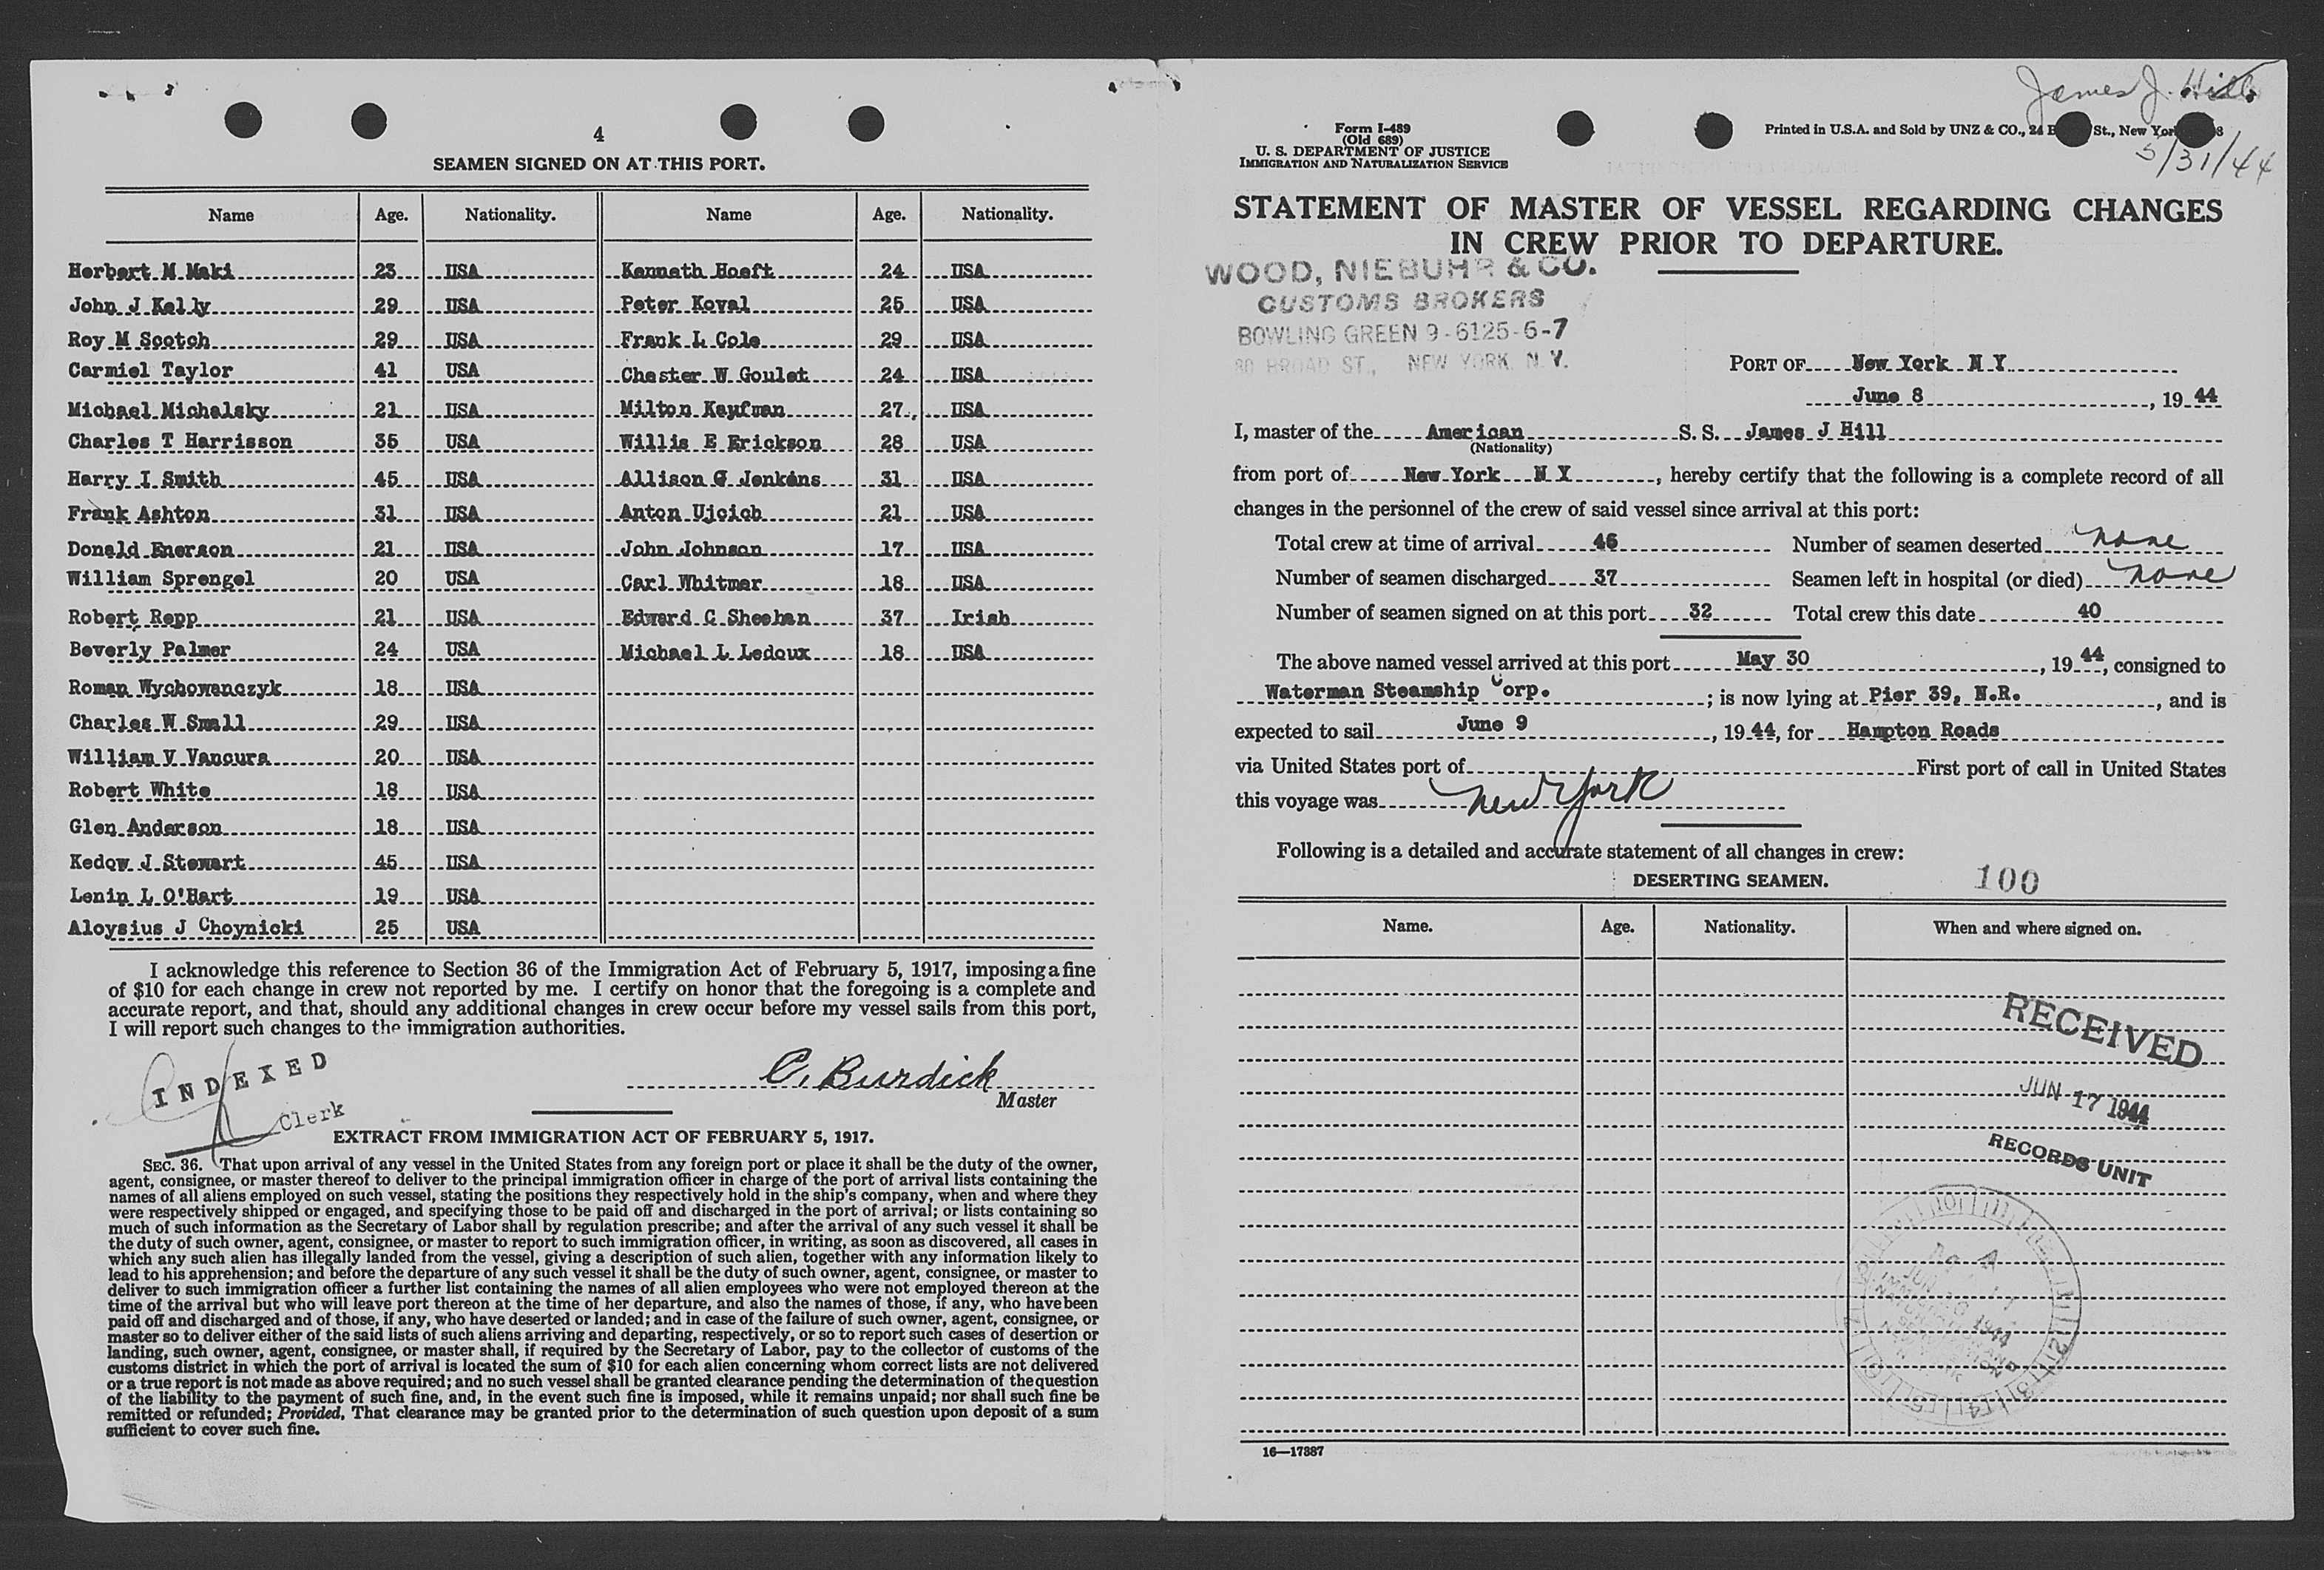 4
SEAMEN SIGNED ON AT THIS PORT.
Name Age. Nationality. Name Age. Nationality.
Herbert M Maki 23 USA Kenneth Hoeft 24 USA
John J Kelly 29 USA Peter Koval 25 USA
Roy M Scotch 29 USA Frank L Cole 29 USA
Carmiel Taylor 41 USA Chester W Goulet 24 USA
Michael Michalsky 21 USA Milton Kaufman 27 USA
Charles T Harrisson 35 USA Willis E Erickson 28 USA
Harry I Smith 45 USA Allison G Jenkins 31 USA
Frank Ashton 31 USA Anton Ujcich 21 USA
Donald Enerson 21 USA John Johnson 17 USA
William Sprengel 20 USA Carl Whitmer 18 USA
Robert Repp 21 USA Edward C Sheehan 37 Irish
Beverly Palmer 24 USA Michael L Ledoux 18 USA
Roman Wychowanczyk 18 USA
Charles W Small 29 USA
William V Vancura 20 USA
Robert White 18 USA
Glen Anderson 18 USA
Kedow J Stewart 45 USA
Lenin L O'Hart 19 USA
Aloysius J Choynicki 25 USA
I acknowledge this reference to Section 36 of the Immigration Act of February 5, 1917, imposing a fine
of $10 for each change in crew not reported by me. I certify on honor that the foregoing is a complete and
accurate report, and that, should any additional changes in crew occur before my vessel sails from this port,
I will report such changes to the immigration authorities.
INDEXED
Clerk
C. Burdick
Master
EXTRACT FROM IMMIGRATION ACT OF FEBRUARY 5, 1917.
SEC. 36. That upon arrival of any vessel in the United States from any foreign port or place it shall be the duty of the owner,
agent, consignee, or master thereof to deliver to the principal immigration officer in charge of the port of arrival lists containing the
names of all aliens employed on such vessel, stating the positions they respectively hold in the ship's company, when and where they
were respectively shipped or engaged, and specifying those to be paid off and discharged in the port of arrival; or lists containing so
much of such information as the Secretary of Labor shall by regulation prescribe; and after the arrival of any such vessel it shall be
the duty of such owner, agent, consignee, or master to report to such immigration officer, in writing, as soon as discovered, all cases in
which any such alien has illegally landed from the vessel, giving a description of such alien, together with any information likely to
lead to his apprehension; and before the departure of any such vessel it shall be the duty of such owner, agent, consignee, or master to
deliver to such immigration officer a further list containing the names of all alien employees who were not employed thereon at the
time of the arrival but who will leave port thereon at the time of her departure, and also the names of those, if any, who have been
paid off and discharged and of those, if any, who have deserted or landed; and in case of the failure of such owner, agent, consignee, or
master so to deliver either of the said lists of such aliens arriving and departing, respectively, or so to report such cases of desertion or
landing, such owner, agent, consignee, or master shall, if required by the Secretary of Labor, pay to the collector of customs of the
customs district in which the port of arrival is located the sum of $10 for each alien concerning whom correct lists are not delivered
or a true report is not made as above required; and no such vessel shall be granted clearance pending the determination of the question
of the liability to the payment of such fine, and, in the event such fine is imposed, while it remains unpaid; nor shall such fine be
remitted or refunded; Provided, That clearance may be granted prior to the determination of such question upon deposit of a sum
sufficient to cover such fine.
James J. Hill
5/31/44
Form I-489
(Old 689)
U. S. DEPARTMENT OF JUSTICE
IMMIGRATION AND NATURALIZATION SERVICE
Printed in U.S.A. and Sold by UNZ & CO., 24 St., New
STATEMENT OF MASTER OF VESSEL REGARDING CHANGES
IN CREW PRIOR TO DEPARTURE.
WOOD, NIEBUHR & CO.
CUSTOMS BROKERS
BOWLING GREEN 9-6125-6-7
80 BROAD ST., NEW YORK, N.Y.
PORT OF New York N Y
June 8, 1944
I, master of the American S. S. James J Hill
(Nationality)
from port of New York N Y, hereby certify that the following is a complete record of all
changes in the personnel of the crew of said vessel since arrival at this port:
Total crew at time of arrival 46 Number of seamen deserted none
Number of seamen discharged 37 Seamen left in hospital (or died) none
Number of seamen signed on at this port 32 Total crew this date 40
The above named vessel arrived at this port May 30, 1944, consigned to
Waterman Steamship Corp.; is now lying at Pier 39, N.R., and is
expected to sail June 9, 1944, for Hampton Roads
via United States port of First port of call in United States
this voyage was New York
Following is a detailed and accurate statement of all changes in crew:
DESERTING SEAMEN. 100
Name. Age. Nationality. When and where signed on.
RECEIVED
JUN 17 1944
RECORDS UNIT
16—17387